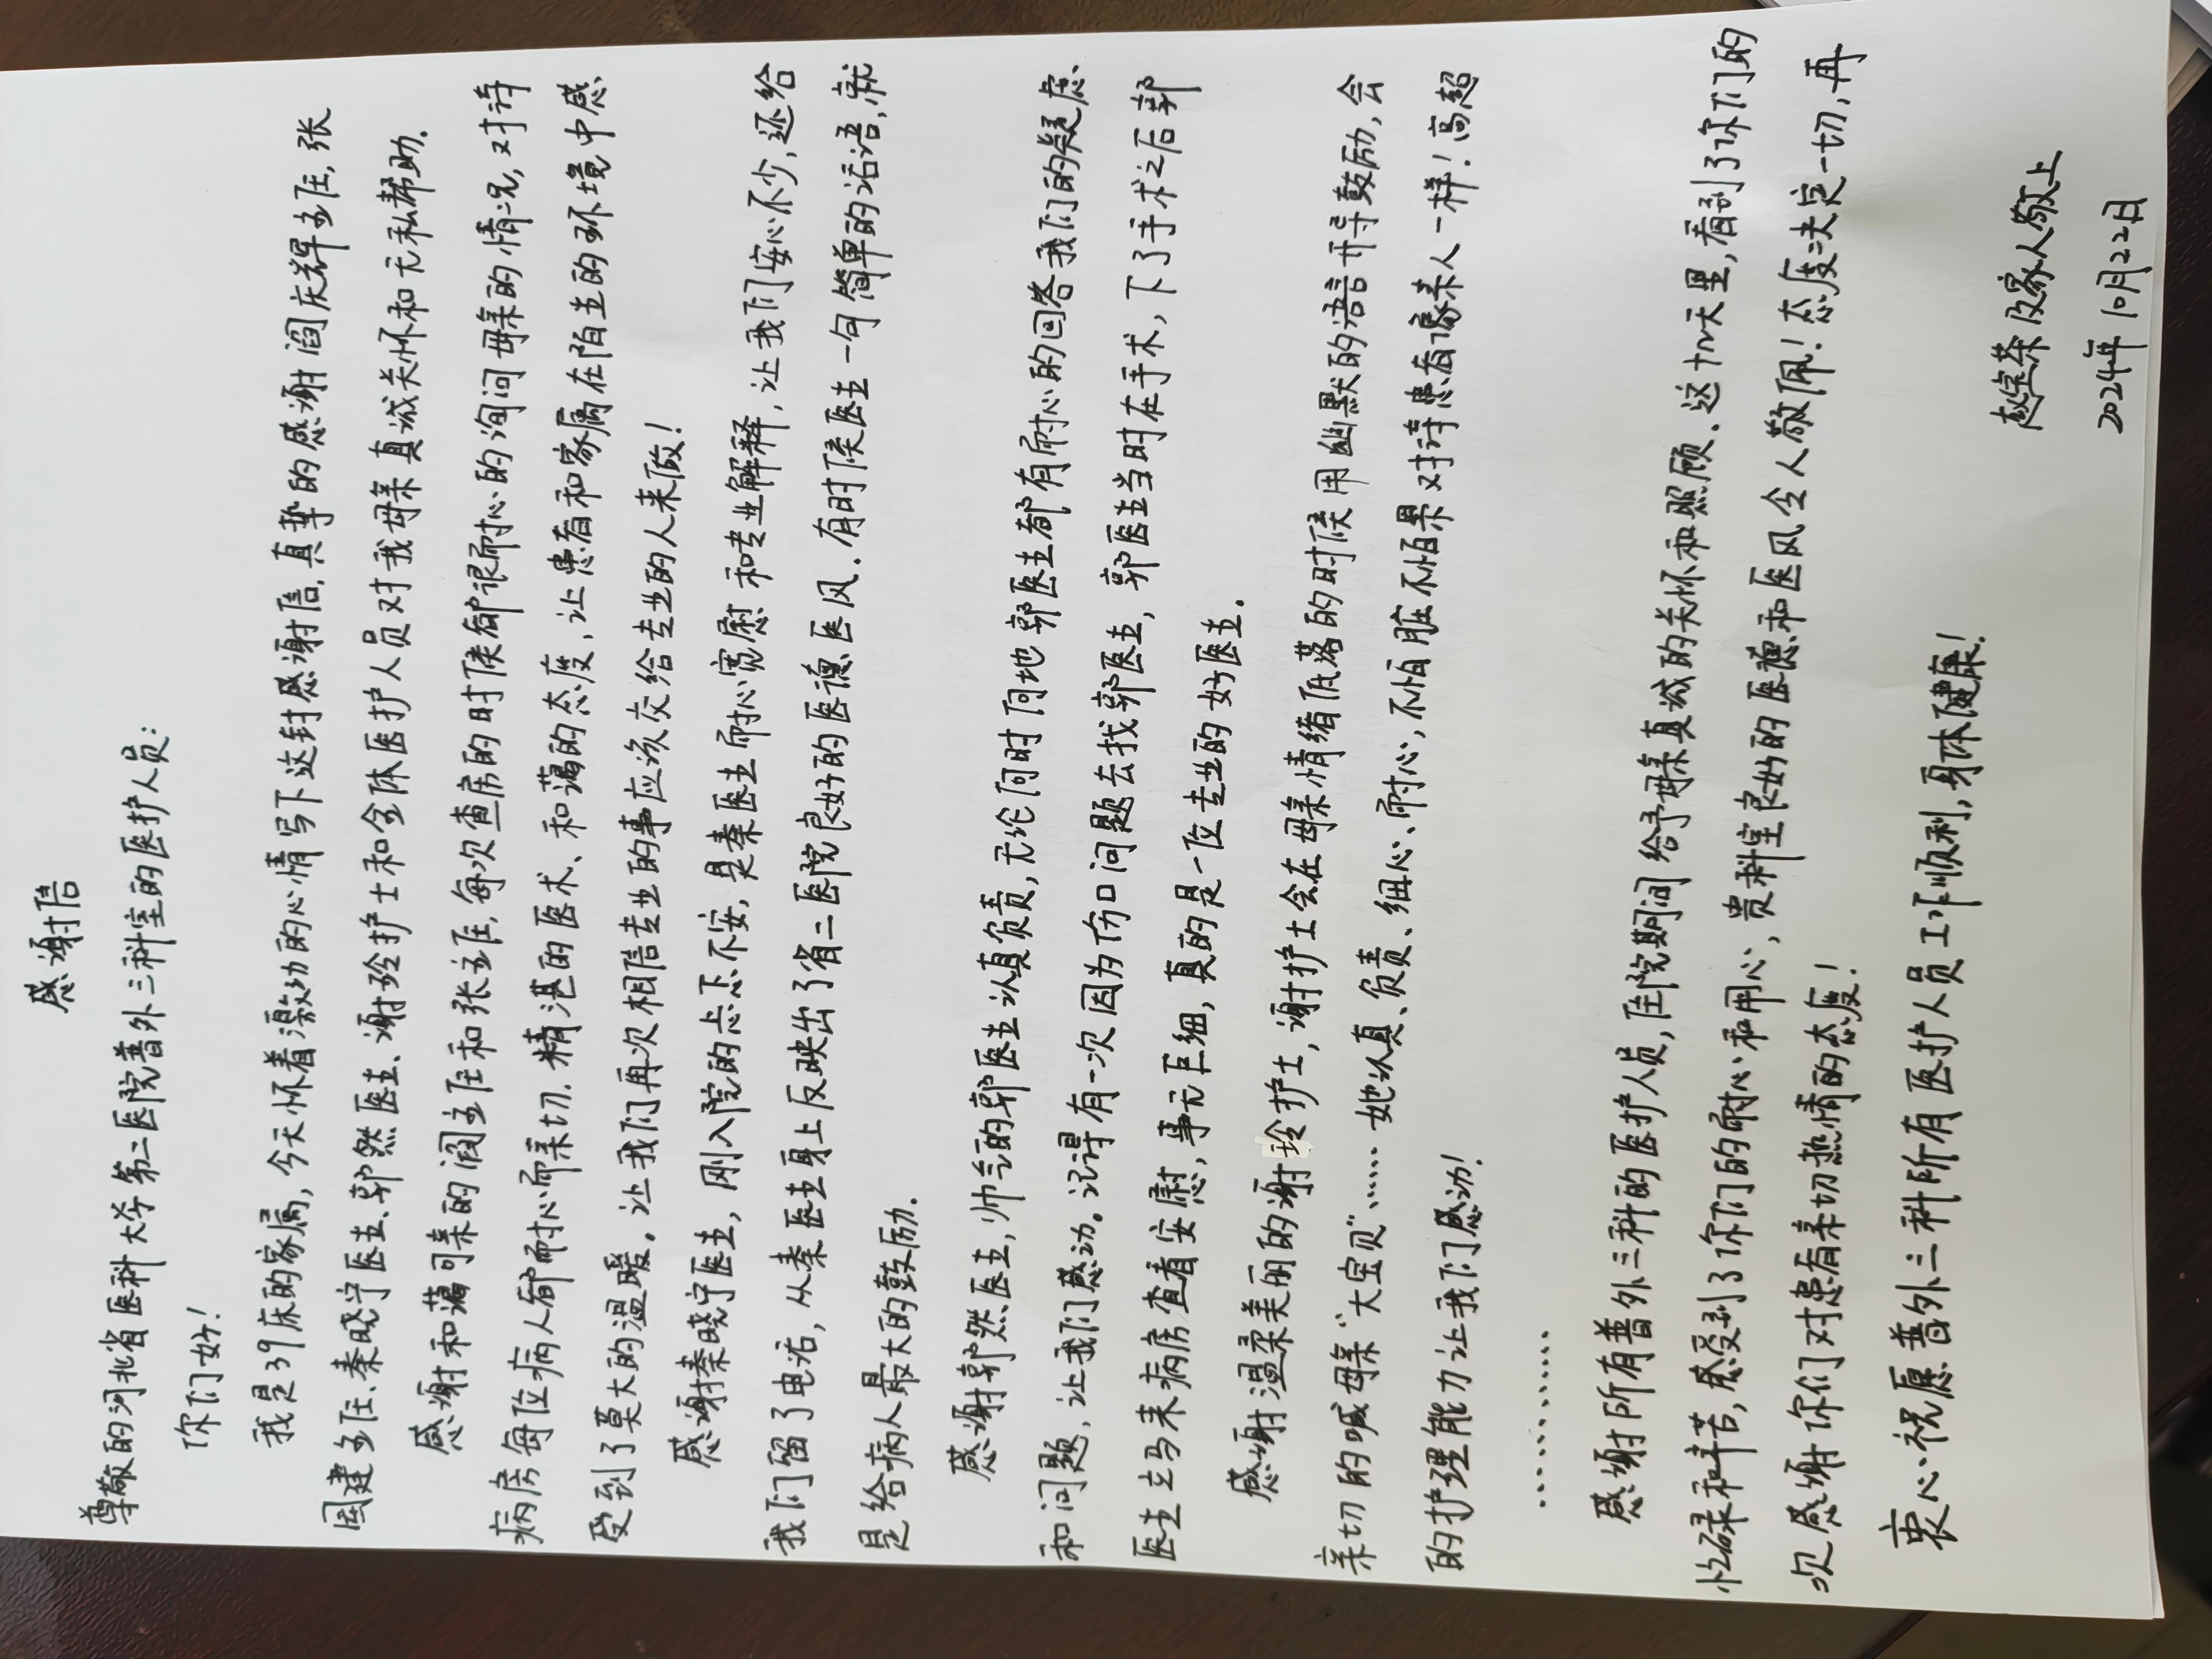 感谢信
尊敬的河北省医科大学第二医院普外三科室的医护人员:
你们好!
我是39床的家属,今天怀着激动的心情写下这封感谢信,真挚的感谢阎庆辉主任,张
国建主任、秦晓宁医生、郭然医生、谢玲护士和全体医护人员对我母亲真诚关怀和无私帮助.
感谢和蔼可亲的阎主任和张主任,每次查房的时候都很耐心的询问母亲的情况,对待
病房每位病人都耐心而亲切.精湛的医术、和蔼的态度,让患者和家属在陌生的环境中感
受到了莫大的温暖。让我们再次相信专业的事应该交给专业的人来做!
感谢秦晓宁医生,刚入院的忐忑不安,是秦医生耐心宽慰和专业解释,让我们安心不少,还给
我们留了电话,从秦医生身上反映出了省二医院良好的医德、医风.有时候医生一句简单的话语,就
是给病人最大的鼓励.
感谢郭然医生,帅气的郭医生认真负责,无论何时何地郭医生都有耐心的回答我们的疑虑、
和问题,让我们感动。记得有一次因为伤口问题去找郭医生,郭医生当时在手术,下了手术之后郭
医生立马来病房查看安慰,事无巨细,真的是一位专业的好医生.
感谢温柔美丽的谢玲护士,谢护士会在母亲情绪低落的时候用幽默的语言开导鼓励,会
亲切的喊母亲“大宝贝”……她认真、负责、细心、耐心,不怕脏不怕累对待患者像亲人一样!高超
的护理能力让我们感动!
…………
感谢所有普外三科的医护人员,住院期间给予母亲真诚的关怀和照顾.这十几天里,看到了你们的
忙碌和辛苦,感受到了你们的耐心和用心,贵科室良好的医德和医风令人敬佩!态度决定一切,再
次感谢你们对患者亲切热情的态度!
衷心祝愿普外三科所有医护人员工作顺利,身体健康!
赵宝荣及家人敬上
2024年10月22日